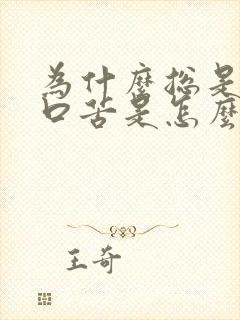 為什麼總是
口苦是怎麼
王奇